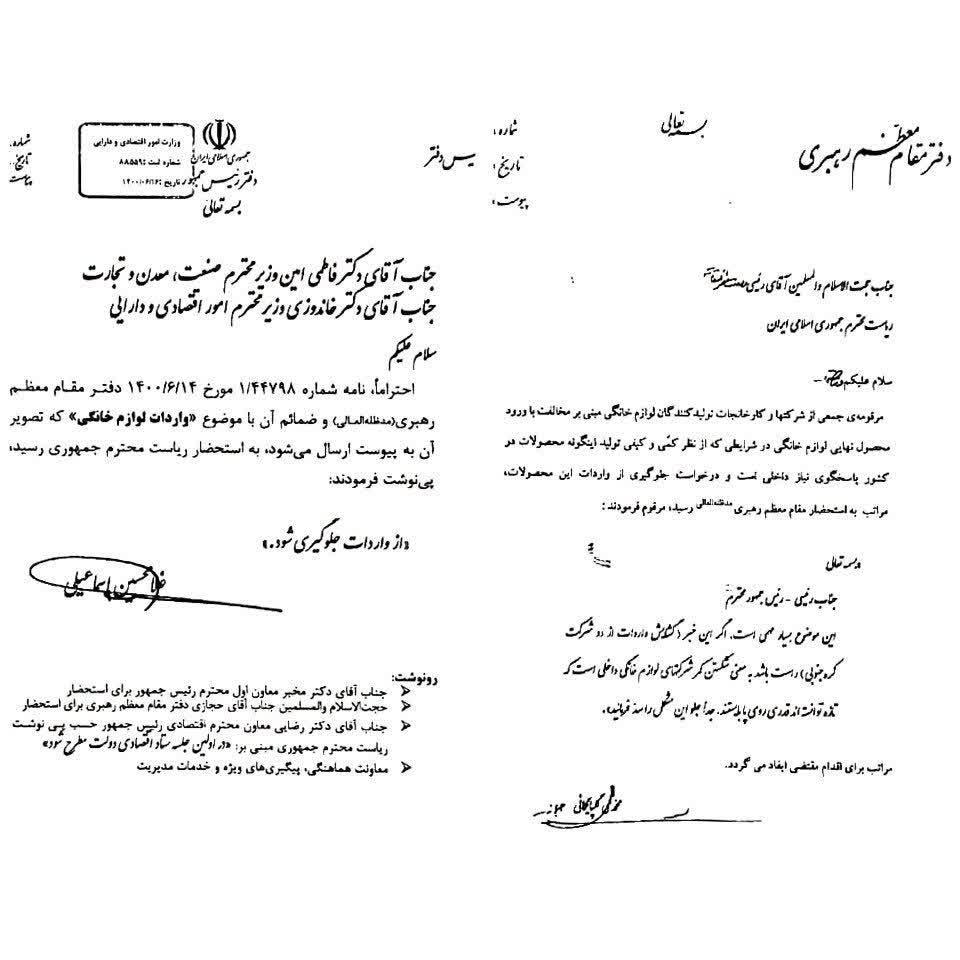 بسمه تعالی
دفتر مقام معظم رهبری
شماره :
تاریخ :
پیوست :
جناب حجت الاسلام والمسلمین آقای رئیسی
ریاست محترم جمهوری اسلامی ایران
سلام علیکم
مرقومه‌ی جمعی از شرکتها و کارخانجات تولیدکنندگان لوازم خانگی مبنی بر مخالفت با ورود
محصول نهایی لوازم خانگی در شرایطی که از نظر کمّی و کیفی تولید اینگونه محصولات در
کشور پاسخگوی نیاز داخلی است و درخواست جلوگیری از واردات این محصولات،
مراتب به استحضار مقام معظم رهبری مدظله‌العالی رسید، مرقوم فرمودند :
«بسمه تعالی
جناب رئیسی - رئیس جمهور محترم
این موضوع بسیار مهمی است. اگر این خبر (گشایش واردات از دو شرکت
کره جنوبی) راست باشد به معنی شکستن کمر شرکتهای لوازم خانگی داخلی است که
تازه توانسته‌اند قدری روی پا بایستند. جداً جلو این مشکل را سد فرمائید».
مراتب برای اقدام مقتضی ایفاد می گردد.
محمدی گلپایگانی
جمهوری اسلامی ایران
دفتر رئیس جمهور
بسمه تعالی
وزارت امور اقتصادی و دارایی
شماره ثبت :۸۸۵۵۹
تاریخ :۱۴۰۰/۰۶/۱۶
شماره
تاریخ
پیوست
رئیس دفتر
جناب آقای دکتر فاطمی امین وزیر محترم صنعت، معدن و تجارت
جناب آقای دکتر خاندوزی وزیر محترم امور اقتصادی و دارایی
سلام علیکم
احتراماً، نامه شماره ۱/۴۴۷۹۸ مورخ ۱۴۰۰/۶/۱۴ دفتر مقام معظم
رهبری(مدظله‌العالی) و ضمائم آن با موضوع «واردات لوازم خانگی» که تصویر
آن به پیوست ارسال می‌شود، به استحضار ریاست محترم جمهوری رسید،
پی‌نوشت فرمودند:
«از واردات جلوگیری شود.»
غلامحسین اسماعیلی
رونوشت:
جناب آقای دکتر مخبر معاون اول محترم رئیس جمهور برای استحضار
حجت‌الاسلام والمسلمین جناب آقای حجازی دفتر مقام معظم رهبری برای استحضار
جناب آقای دکتر رضایی معاون محترم اقتصادی رئیس جمهور حسب پی نوشت
ریاست محترم جمهوری مبنی بر: «در اولین جلسه ستاد اقتصادی دولت مطرح شود»
معاونت هماهنگی، پیگیری‌های ویژه و خدمات مدیریت